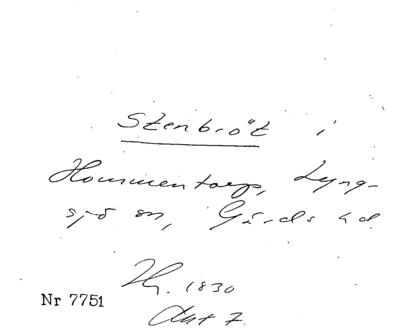 Stenbrot i
Hommentorp, Lyng-
sjö sn, Gärds hd.
Nr 7751
Th. 1830
Aut 7.